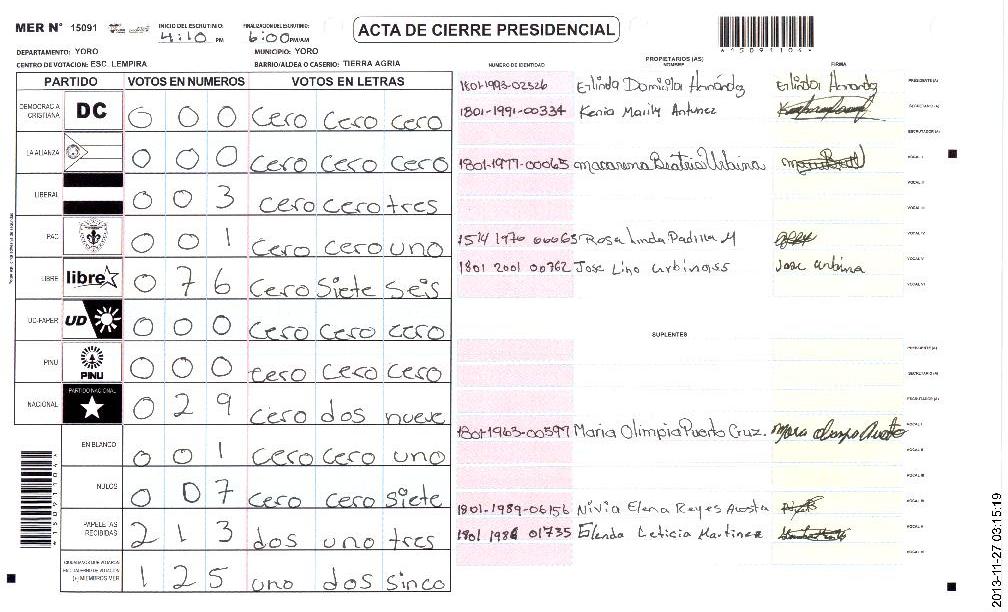 MER N° 15091
INICIO DEL ESCRUTINIO:
4:10 PM
FINALIZACION DEL ESCRUTINIO:
6:00 PM/AM
ACTA DE CIERRE PRESIDENCIAL
DEPARTAMENTO: YORO
MUNICIPIO: YORO
CENTRO DE VOTACION: ESC. LEMPIRA
BARRIO/ALDEA O CASERIO: TIERRA AGRIA
PARTIDO VOTOS EN NUMEROS VOTOS EN LETRAS
DEMOCRACIA CRISTIANA DC 0 0 0 cero cero cero
LA ALIANZA 0 0 0 cero cero cero
LIBERAL 0 0 3 cero cero tres
PAC 0 0 1 cero cero uno
LIBRE libre 0 7 6 cero siete seis
UD-FAPER UD 0 0 0 cero cero cero
PINU PINU 0 0 0 cero cero cero
NACIONAL PARTIDO NACIONAL 0 2 9 cero dos nueve
EN BLANCO 0 0 1 cero cero uno
NULOS 0 0 7 cero cero siete
PAPELETAS RECIBIDAS 2 1 3 dos uno tres
1 2 5 uno dos sinco
PROPIETARIOS (AS)
NUMERO DE IDENTIDAD NOMBRE FIRMA
1801-1993-02526 Erlinda Domicila Hernández Erlinda Hernandez PRESIDENTE (A)
1801-1991-00334 Kenia Marily Antunez SECRETARIO (A)
ESCRUTADOR (A)
1801-1977-00065 macarena Beatriz Urbina VOCAL I
VOCAL II
VOCAL III
1514 1970 00063 Rosa Linda Padilla M VOCAL IV
1801 2001 00762 Jose Lino urbina Jose urbina VOCAL V
VOCAL VI
SUPLENTES
PRESIDENTE (A)
SECRETARIO (A)
ESCRUTADOR (A)
1801-1963-00597 Maria Olimpia Puerto Cruz. VOCAL I
VOCAL II
VOCAL III
1801-1989-06156 Nivia Elena Reyes Acosta VOCAL IV
1801 1986 01735 Elenda Leticia Martinez VOCAL V
VOCAL VI
2013-11-27 03:15:19